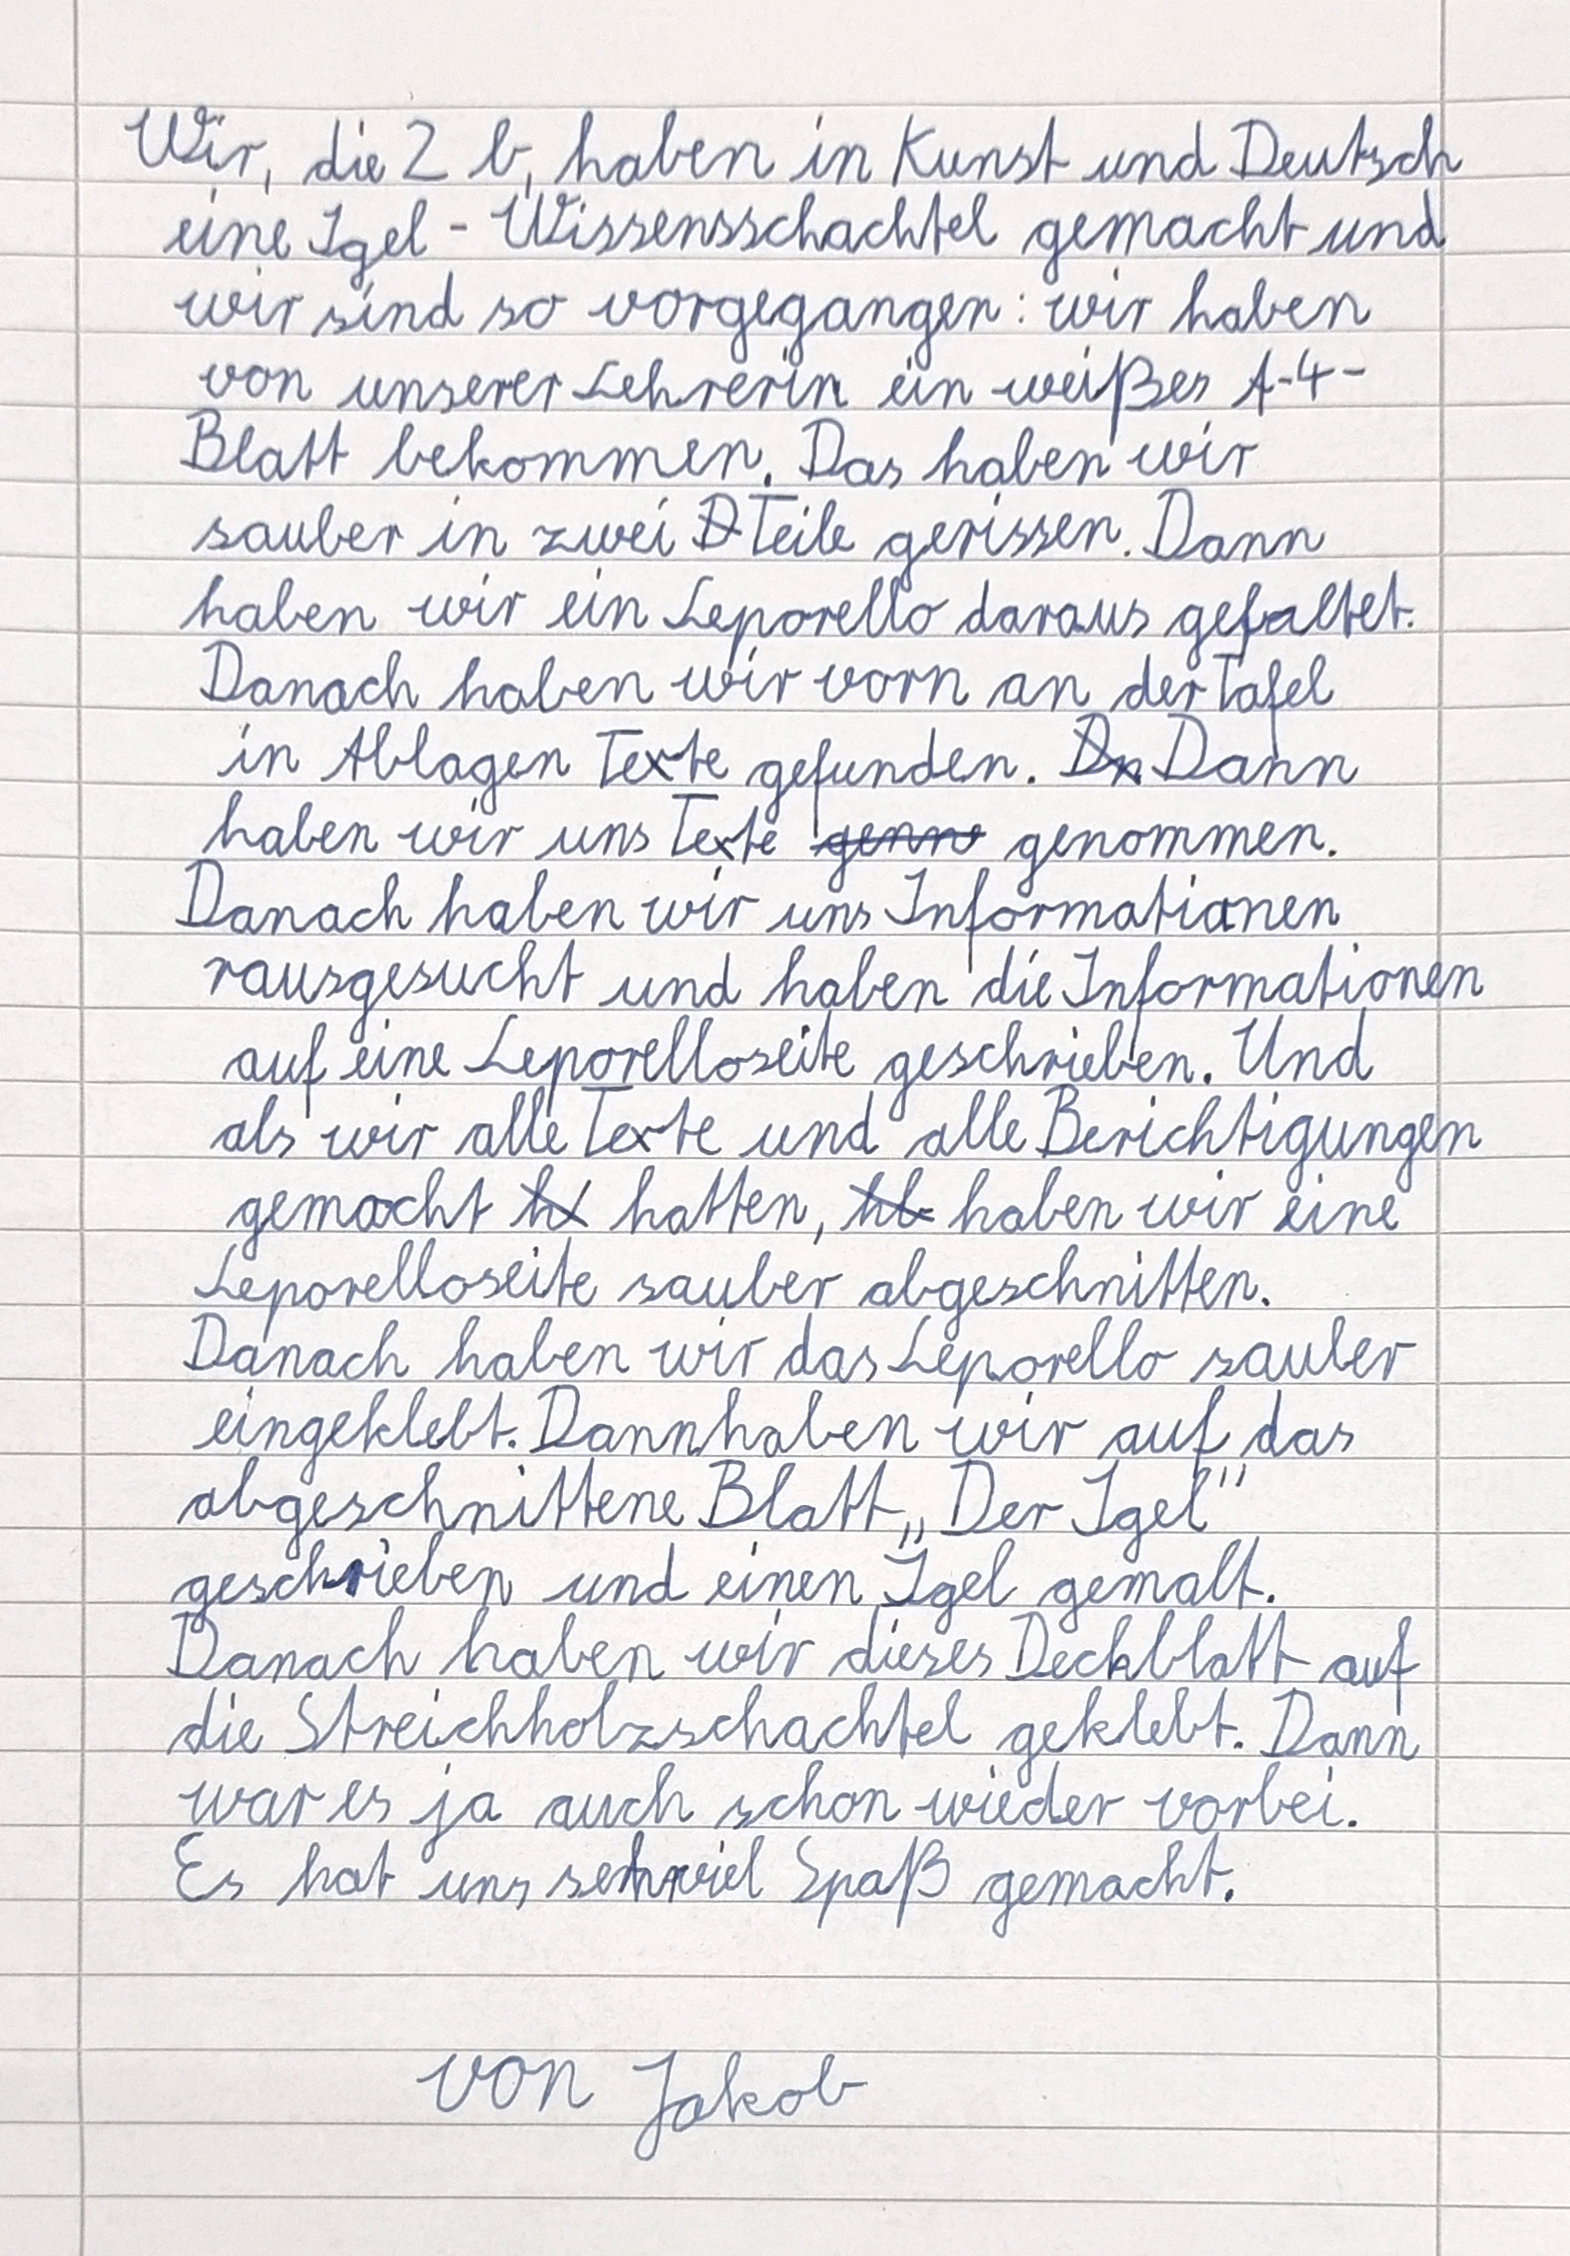 Wir, die 2 b, haben in Kunst und Deutsch
eine Igel - Wissensschachtel gemacht und
wir sind so vorgegangen: wir haben
von unserer Lehrerin ein weißes A-4-
Blatt bekommen. Das haben wir
sauber in zwei D Teile gerissen. Dann
haben wir ein Leporello daraus gefaltet.
Danach haben wir vorn an der Tafel
in Ablagen Texte gefunden. Dn Dann
haben wir uns Texte genno genommen.
Danach haben wir uns Informatianen
rausgesucht und haben die Informationen
auf eine Leporelloseite geschrieben. Und
als wir alle Texte und alle Berichtigungen
gemacht h hatten, hb haben wir eine
Leporelloseite sauber abgeschnitten.
Danach haben wir das Leporello sauber
eingeklebt. Dann haben wir auf das
abgeschnittene Blatt „Der Igel"
geschrieben und einen Igel gemalt.
Danach haben wir dieses Deckblatt auf
die Streichholzschachtel geklebt. Dann
war es ja auch schon wieder vorbei.
Es hat uns sehr viel Spaß gemacht.
von Jakob